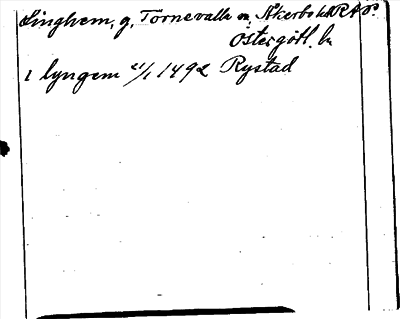 Linghem, g, Tornevalla sn, Åkerbo hd RAP.
Östergötl. ln
i lyngem 21/1 1492 Rystad